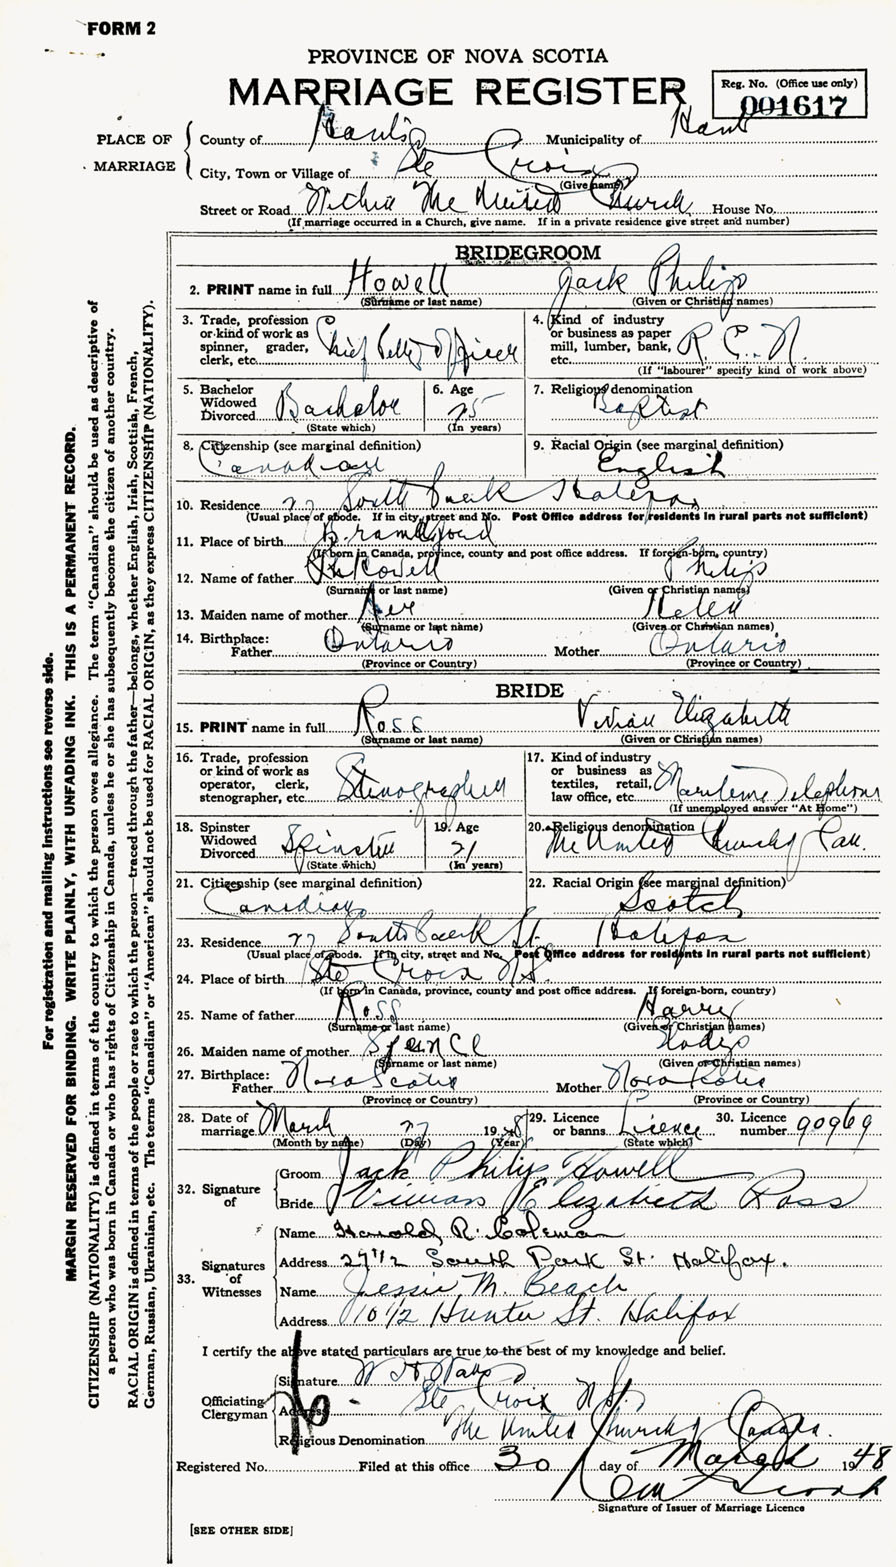 FORM 2
PROVINCE OF NOVA SCOTIA
MARRIAGE REGISTER
Reg. No. (Office use only)
001617
PLACE OF MARRIAGE
County of Hants Municipality of Hants
City, Town or Village of Ste Croix
(Give name)
Street or Road Within The United Church House No.
(If marriage occurred in a Church, give name. If in a private residence give street and number)
BRIDEGROOM
2. PRINT name in full Howell Jack Philip
(Surname or last name) (Given or Christian names)
3. Trade, profession or kind of work as spinner, grader, clerk, etc. Chief Petty Officer
4. Kind of industry or business as paper mill, lumber, bank, etc. R. C. N.
(If "labourer" specify kind of work above)
5. Bachelor Widowed Divorced Bachelor
(State which)
6. Age 25
(In years)
7. Religious denomination Baptist
8. Citizenship (see marginal definition) Canadian
9. Racial Origin (see marginal definition) English
10. Residence 27 South Park Halifax
(Usual place of abode. If in city, street and No. Post Office address for residents in rural parts not sufficient)
11. Place of birth
(If born in Canada, province, county and post office address. If foreign-born, country)
12. Name of father Howell Philip
(Surname or last name) (Given or Christian names)
13. Maiden name of mother Helen
(Surname or last name) (Given or Christian names)
14. Birthplace: Father Ontario Mother Ontario
(Province or Country) (Province or Country)
BRIDE
15. PRINT name in full Ross Vivian Elizabeth
(Surname or last name) (Given or Christian names)
16. Trade, profession or kind of work as operator, clerk, stenographer, etc. Stenographer
17. Kind of industry or business as textiles, retail, law office, etc. Maritime Telephone
(If unemployed answer "At Home")
18. Spinster Widowed Divorced Spinster
(State which)
19. Age 21
(In years)
20. Religious denomination The United Church of Can.
21. Citizenship (see marginal definition) Canadian
22. Racial Origin (see marginal definition) Scotch
23. Residence 27 South Park St. Halifax
(Usual place of abode. If in city, street and No. Post Office address for residents in rural parts not sufficient)
24. Place of birth Ste Croix N.S.
(If born in Canada, province, county and post office address. If foreign-born, country)
25. Name of father Ross Harry
(Surname or last name) (Given or Christian names)
26. Maiden name of mother Spence Gladys
(Surname or last name) (Given or Christian names)
27. Birthplace: Father Nova Scotia Mother Nova Scotia
(Province or Country) (Province or Country)
28. Date of marriage March 27 1948
(Month by name) (Day) (Year)
29. Licence or banns Licence
(State which)
30. Licence number 90969
32. Signature of
Groom Jack Philip Howell
Bride Vivian Elizabeth Ross
33. Signatures of Witnesses
Name Harold R. Coleman
Address 27 1/2 South Park St. Halifax.
Name Jessie M. Beach
Address 10 1/2 Hunter St. Halifax
I certify the above stated particulars are true to the best of my knowledge and belief.
Officiating Clergyman
Signature
Address Ste Croix N.S.
Religious Denomination The United Church of Canada.
Registered No. Filed at this office 30 day of March 1948
Signature of Issuer of Marriage Licence
[SEE OTHER SIDE]
For registration and mailing instructions see reverse side.
MARGIN RESERVED FOR BINDING. WRITE PLAINLY, WITH UNFADING INK. THIS IS A PERMANENT RECORD.
CITIZENSHIP (NATIONALITY) is defined in terms of the country to which the person owes allegiance. The term "Canadian" should be used as descriptive of
a person who was born in Canada or who has rights of Citizenship in Canada, unless he or she has subsequently become the citizen of another country.
RACIAL ORIGIN is defined in terms of the people or race to which the person—traced through the father—belongs, whether English, Irish, Scottish, French,
German, Russian, Ukrainian, etc. The terms "Canadian" or "American" should not be used for RACIAL ORIGIN, as they express CITIZENSHIP (NATIONALITY).